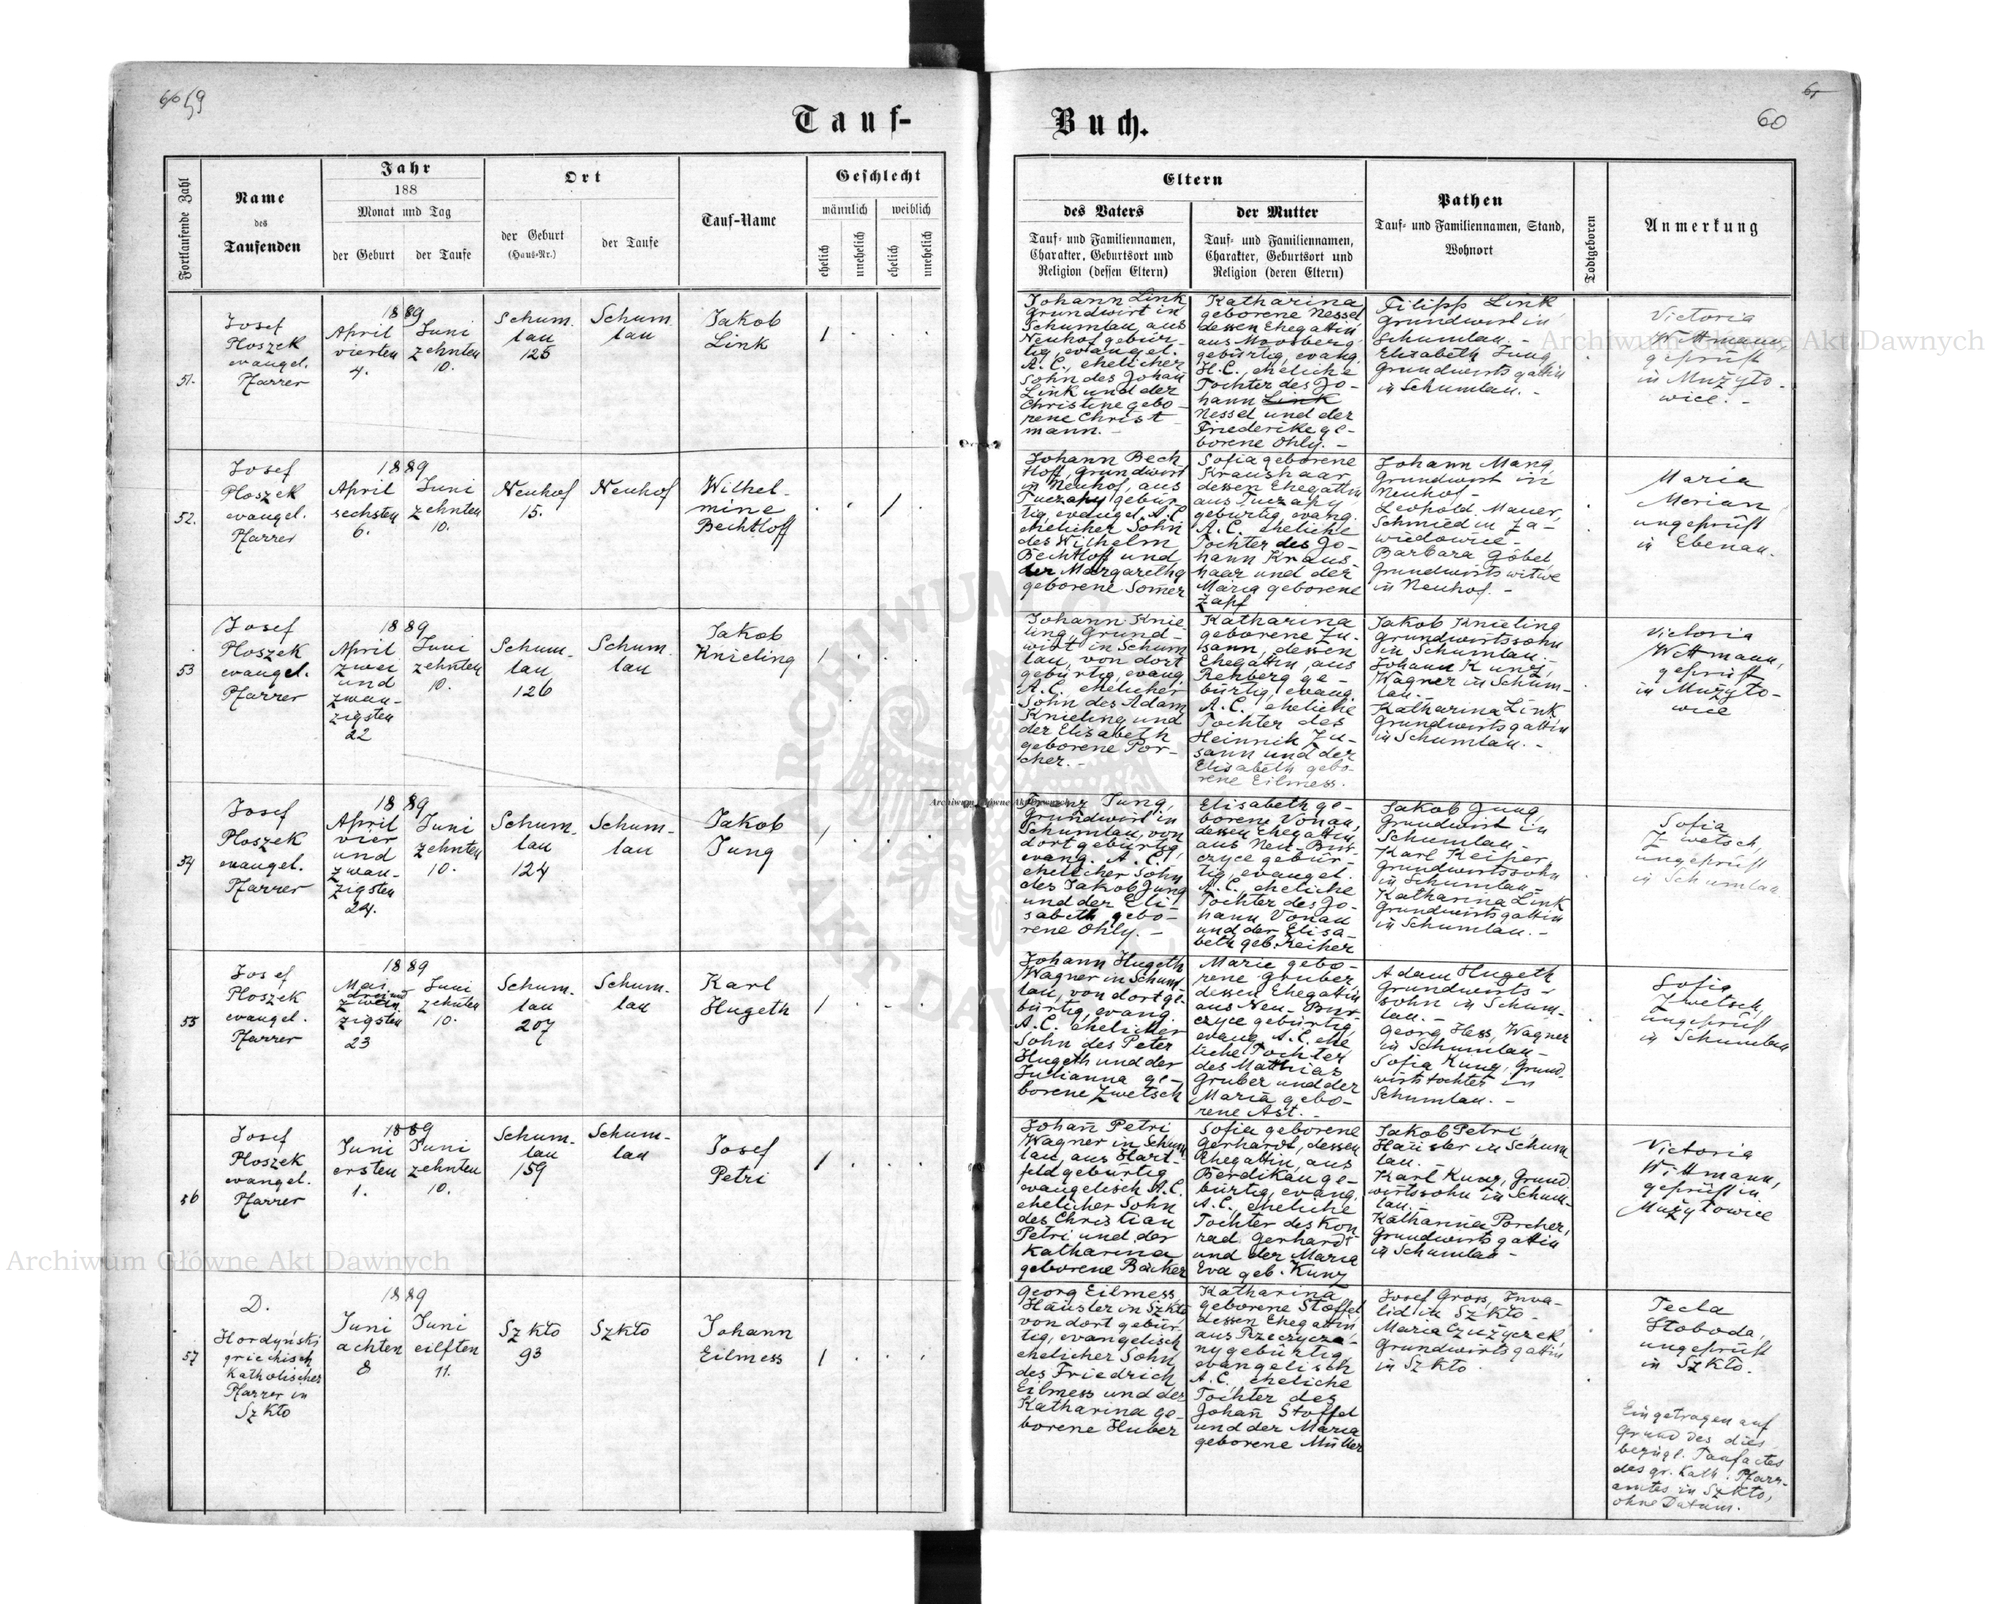 60 59
Tauf-
Buch.
61
60
Fortlaufende Zahl
Name
des
Taufenden
Jahr
188
Monat und Tag
der Geburt
der Taufe
Ort
der Geburt
(Haus-Nr.)
der Taufe
Tauf-Name
Geschlecht
männlich
weiblich
ehelich
unehelich
ehelich
unehelich
Eltern
des Vaters
Tauf- und Familiennamen,
Charakter, Geburtsort und
Religion (dessen Eltern)
der Mutter
Tauf- und Familiennamen,
Charakter, Geburtsort und
Religion (deren Eltern)
Pathen
Tauf- und Familiennamen, Stand,
Wohnort
Todtgeboren
Anmerkung
51.
Josef
Ploszek
evangel.
Pfarrer
1889
April
vierten
4.
Juni
zehnten
10.
Schum
lau
125
Schum
lau
Jakob
Link
1
Johann Link
Grundwirt in
Schumlau, aus
Neuhof gebür-
tig, evangel.
A.C., ehelicher
Sohn des Johan
Link und der
Christine gebo-
rene Christ
mann. -
Katharina
geborene Nessel
dessen Ehegattin
aus Moosberg
gebürtig, evang.
H.C., eheliche
Tochter des Jo-
hann Link
Nessel und der
Friederike ge-
borene Ohly. -
Filipp Link
Grundwirt in
Schumlau. -
Elisabeth Jung
Grundwirts gattin
in Schumlau. -
Victoria
Wittmann,
geprüft
in Mużyło-
wice. -
52.
Josef
Ploszek
evangel.
Pfarrer
1889
April
sechsten
6.
Juni
zehnten
10.
Neuhof
15.
Neuhof
Wilhel-
mine
Bechtloff
1
Johann Bech
tloff, Grundwirt
in Neuhof, aus
Tuczapy gebür
tig, evangel. A.C.
ehelicher Sohn
des Wilhelm
Bechtloff und
der Margaretha
geborene Somer
Sofia geborene
Kraushaar
dessen Ehegattin
aus Tuczapy
gebürtig, evang.
A.C. eheliche
Tochter des Jo-
hann Kraus-
haar und der
Maria geborene
Zapf
Johann Mang,
Grundwirt in
Neuhof -
Leopold Mauer,
Schmied in Za-
wiedowice -
Barbara Göbel
Grundwirts witwe
in Neuhof. -
Maria
Merian,
ungeprüft
in Ebenau.
53
Josef
Ploszek
evangel.
Pfarrer
1889
April
zwei
und
zwan-
zigsten
22
Juni
zehnten
10.
Schum-
lau
126
Schum
lau
Jakob
Knieling
1
Johann Knie
ling, Grund-
wirt in Schum
lau, von dort
gebürtig, evang.
A.C., ehelicher
Sohn des Adam
Knieling und
der Elisabeth
geborene Por-
cher. -
Katharina
geborene Zu-
sann, dessen
Ehegattin, aus
Rehberg ge-
bürtig, evang.
A.C., eheliche
Tochter des
Heinrik Zu-
sann und der
Elisabeth gebo-
rene Eilmess.
Jakob Knieling
Grundwirtssohn
in Schumlau. -
Johann Kunz,
Wagner in Schum-
lau. -
Katharina Link
Grundwirts gattin
in Schumlau. -
Victoria
Wittmann,
geprüft
in Mużyło-
wice
54
Josef
Ploszek
evangel.
Pfarrer
1889
April
vier
und
zwan-
zigsten
24.
Juni
zehnten
10.
Schum-
lau
124
Schum-
lau
Jakob
Jung
1
Franz Jung,
Grundwirt in
Schumlau, von
dort gebürtig,
evang. A.C.,
ehelicher Sohn
des Jakob Jung
und der Eli-
sabeth gebo-
rene Ohly. -
Elisabeth ge-
borene Vonau,
dessen Ehegattin,
aus Neu-Bur
czyce gebür-
tig, evangel.
A.C., eheliche
Tochter des Jo-
hann Vonau
und der Elisa-
beth geb. Reiher
Jakob Jung,
Grundwirt in
Schumlau -
Karl Keiper,
Grundwirtssohn
in Schumlau -
Katharina Link
Grundwirts gattin
in Schumlau. -
Sofia
Zwetsch,
ungeprüft
in Schumlau
55
Josef
Ploszek
evangel.
Pfarrer
1889
Mai
drei und
zwan-
zigsten
23
Juni
zehnten
10.
Schum-
lau
207
Schum-
lau
Karl
Hugeth
1
Johann Hugeth
Wagner in Schum
lau, von dort ge-
bürtig, evang.
A.C. ehelicher
Sohn des Peter
Hugeth und der
Julianna ge-
borene Zwetsch
Marie gebo-
rene Gruber
dessen Ehegattin
aus Neu-Bur
czyce gebürtig,
evang. A.C. ehe
liche Tochter
des Matthias
Gruber und der
Maria gebo-
rene Ast. -
Adam Hugeth
Grundwirts-
sohn in Schum-
lau. -
Georg Hess, Wagner
in Schumlau -
Sofia Kunz, Grund-
wirts tochter in
Schumlau. -
Sofia
Zwetsch,
ungeprüft
in Schumlau
56
Josef
Ploszek
evangel.
Pfarrer
1889
Juni
ersten
1.
Juni
zehnten
10.
Schum-
lau
159
Schum-
lau
Josef
Petri
1
Johan̄ Petri
Wagner in Schum
lau, aus Hart-
feld gebürtig
evangelisch A.C.
ehelicher Sohn
des Christian
Petri und der
Katharina
geborene Bäcker
Sofia geborene
Gerhardt, dessen
Ehegattin, aus
Berdikau ge-
bürtig, evang.
A.C., eheliche
Tochter des Kon
rad Gerhardt
und der Maria
Eva geb. Kunz
Jakob Petri
Häusler in Schum
lau. -
Karl Kunz, Grund
wirtssohn in Schum-
lau. -
Katharina Porcher,
Grundwirts gattin
in Schumlau -
Victoria
Wittmann,
geprüft in
Mużyłowice
57
D.
Hordyński
griechisch
Katholischer
Pfarrer in
Szkło
1889
Juni
achten
8
Juni
eilften
11.
Szkło
93
Szkło
Johann
Eilmess
1
Georg Eilmess,
Häusler in Szkło
von dort gebür-
tig, evangelisch
ehelicher Sohn
des Friedrich
Eilmess und der
Katharina ge-
borene Huber
Katharina
geborene Stoffel,
dessen Ehegattin,
aus Rzeczycza-
ny gebürtig
evangelisch
A.C. eheliche
Tochter des
Johan̄ Stoffel
und der Maria
geborene Müller
Josef Gross, Inva-
lid in Szkło -
Maria Czużyczek
Grundwirts gattin
in Szkło
Tecla
Słoboda,
ungeprüft
in Szkło.
Eingetragen auf
Grund des dies
bezügl. Taufactes
des gr. Kath. Pfarr-
amtes in Szkło,
ohne Datum.
Archiwum Główne Akt Dawnych
Archiwum Główne Akt Dawnych
Archiwum Główne Akt Dawnych